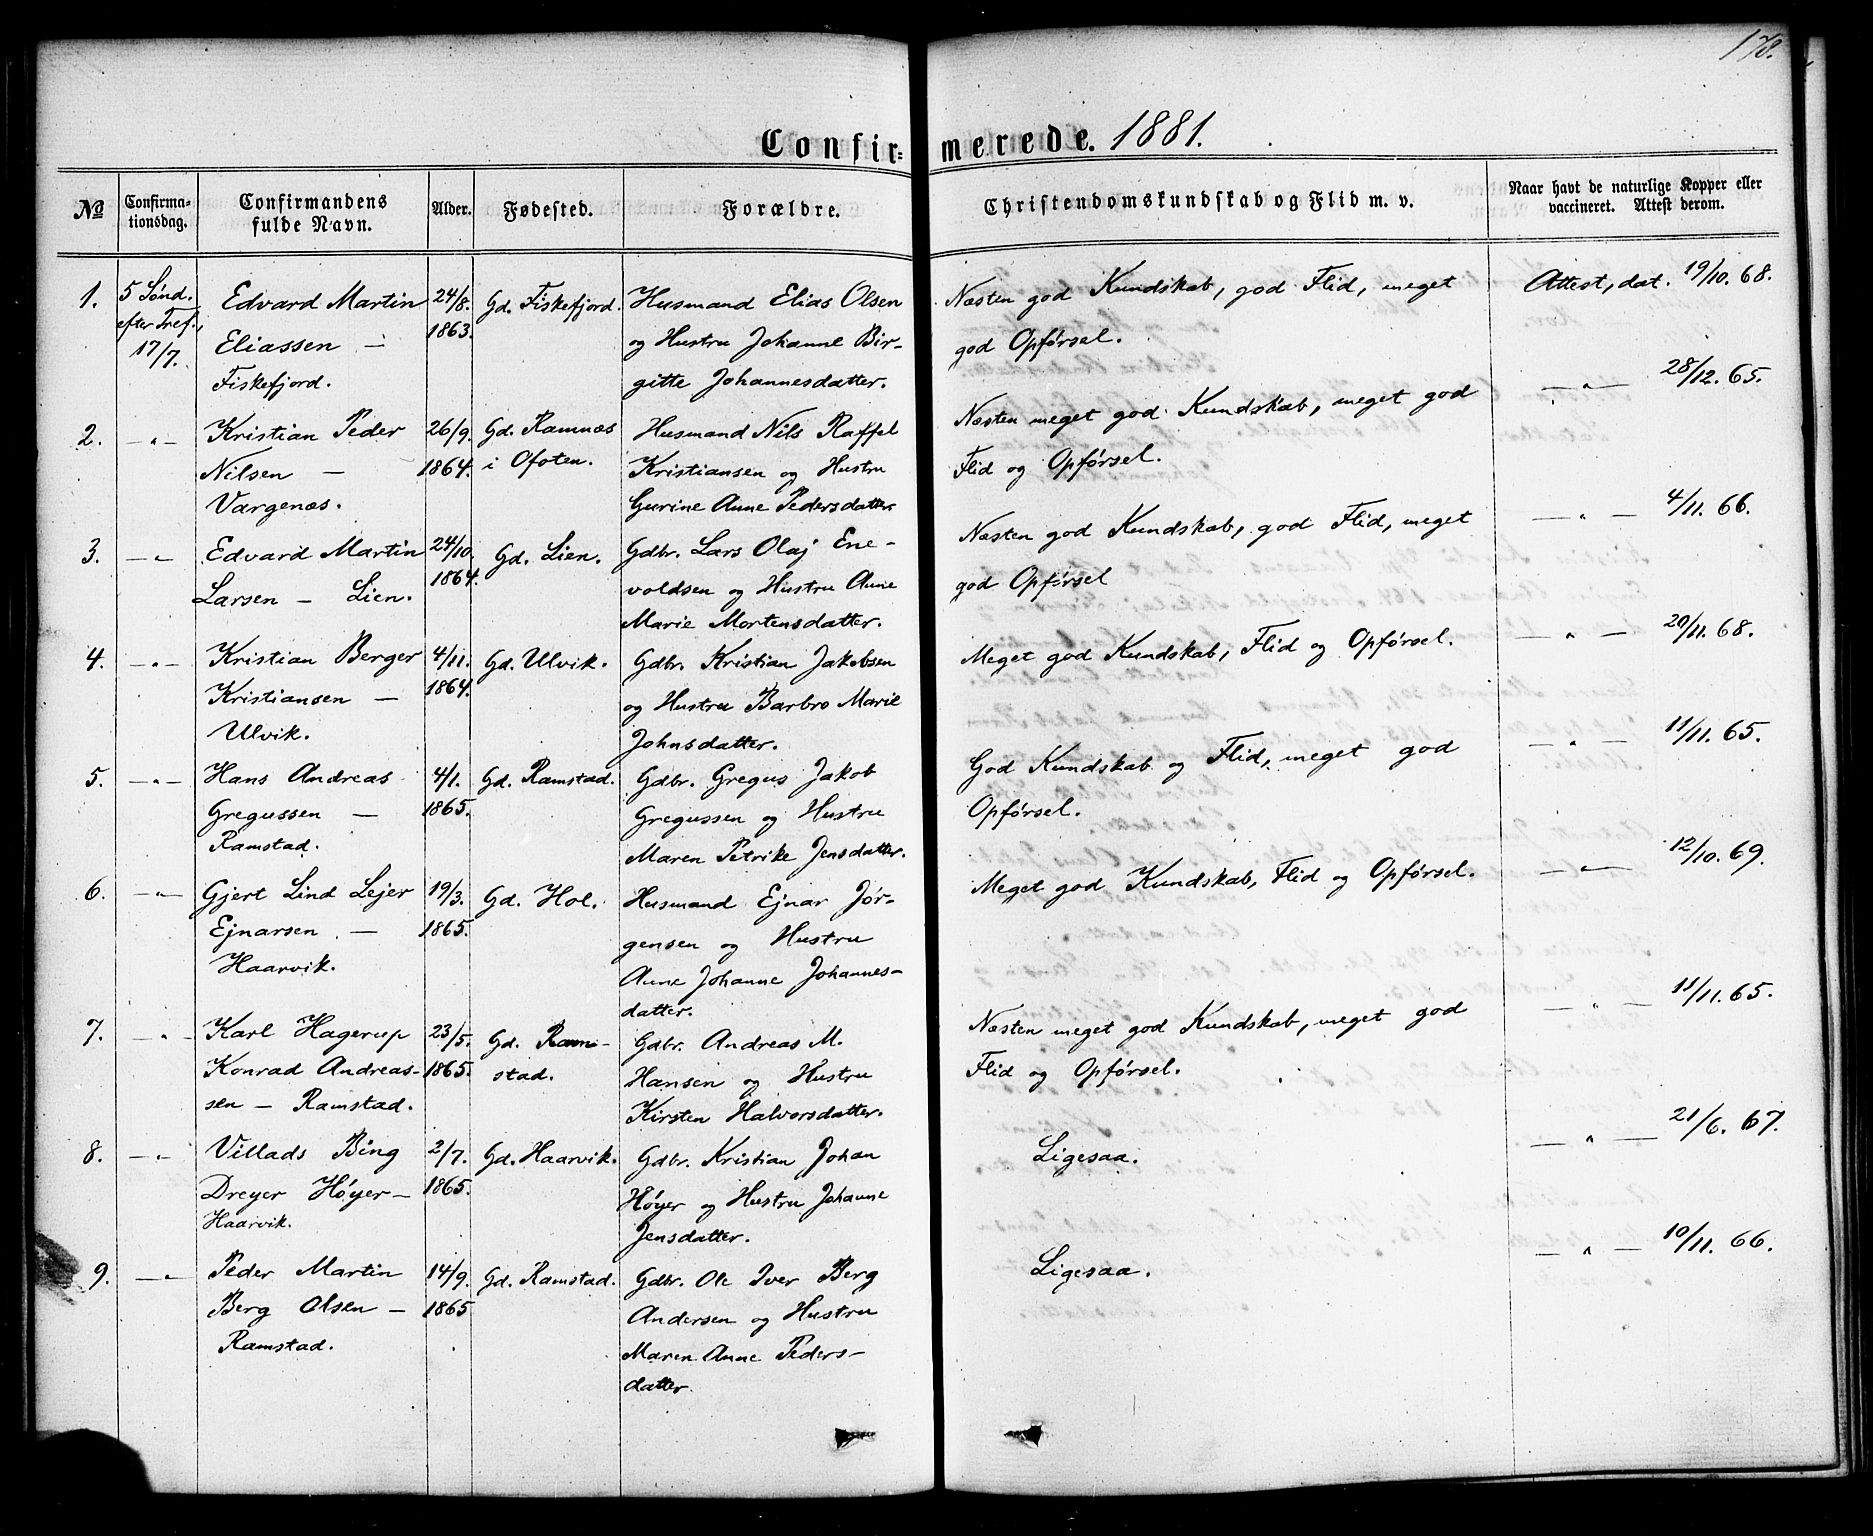 178.
Confirmerede. 1881.
№ Confirmationsdag. Confirmandens fulde Navn. Alder. Fødested. Forældre. Christendomskundskab og Flid m. v. Naar havt de naturlige Kopper eller vaccineret. Attest derom.
1. 5 Sønd. efter Tref., 17/7. Edvard Martin Eliassen – Fiskefjord. 24/8. 1863. Gd. Fiskefjord. Husmand Elias Olsen
og Hustru Johanne Bir-
gitte Johannesdatter.
Næsten god Kundskab, god Flid, meget
god Opførsel.
Attest, dat. 19/10. 68.
2. –„– Kristian Peder
Nilsen –
Vargenæs.
26/9. 1864.
Gd. Ramnæs
i Ofoten.
Husmand Nils Raffel
Kristiansen og Hustru
Gurine Anne Pedersdatter
Næsten meget god Kundskab, meget god
Flid og Opførsel.
–„– 28/12. 65.
3. –„– Edvard Martin
Larsen – Lien.
24/10. 1864.
Gd. Lien.
Gdbr. Lars Olaj Ene-
voldsen og Hustru Anne
Marie Mortensdatter.
Næsten god Kundskab, god Flid, meget
god Opførsel
–„– 4/11. 66.
4. –„– Kristian Berger
Kristiansen –
Ulvik.
4/11. 1864.
Gd. Ulvik.
Gdbr. Kristian Jakobsen
og Hustru Barbro Marie
Johnsdatter.
Meget god Kundskab, Flid og Opførsel.
–„– 20/11. 68.
5. –„– Hans Andreas
Gregussen –
Ramstad.
4/1. 1865.
Gd. Ramstad.
Gdbr. Gregus Jakob
Gregussen og Hustru
Maren Petrike Jensdatter.
God Kundskab og Flid, meget god
Opførsel.
–„– 11/11. 65.
6. –„– Gjert Lind Lejer
Ejnarsen –
Haarvik.
19/3. 1865.
Gd. Hol.
Husmand Ejnar Jør-
gensen og Hustru
Anne Johanne Johannes-
datter.
Meget god Kundskab, Flid og Opførsel.
–„– 12/10. 69.
7. –„– Karl Hagerup
Konrad Andreas-
sen – Ramstad.
23/5. 1865.
Gd. Ram-
stad.
Gdbr. Andreas M.
Hansen og Hustru
Kirsten Halvorsdatter.
Næsten meget god Kundskab, meget god
Flid og Opførsel.
–„– 11/11. 65.
8. –„– Villads Bing
Dreyer Høyer –
Haarvik.
2/7. 1865.
Gd. Haarvik.
Gdbr. Kristian Johan
Høyer og Hustru Johanne
Jensdatter.
Ligesaa.
–„– 21/6. 67.
9. –„– Peder Martin
Berg Olsen –
Ramstad.
14/9. 1865
Gd. Ramstad.
Gdbr. Ole Iver Berg
Andersen og Hustru
Maren Anne Peders-
datter.
Ligesaa.
–„– 10/11. 66.